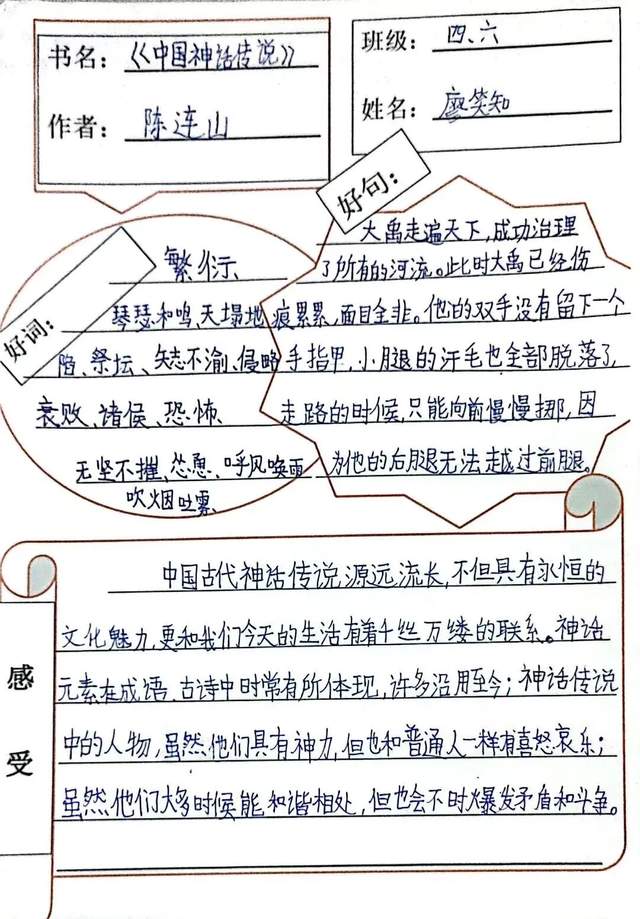 书名：《中国神话传说》
作者：陈连山
班级：四、六
姓名：廖笑知
好词：
繁衍
琴瑟和鸣、天塌地
陷、祭坛、矢志不渝、侵略
衰败、诸侯、恐怖、
无坚不摧、怂恿、呼风唤雨
吹烟吐雾、
好句：
大禹走遍天下，成功治理
了所有的河流。此时大禹已经伤
痕累累，面目全非。他的双手没有留下一个
手指甲，小腿的汗毛也全部脱落了，
走路的时候，只能向前慢慢挪，因
为他的后腿无法越过前腿。
感受
中国古代神话传说，源远流长，不但具有永恒的
文化魅力，更和我们今天的生活有着千丝万缕的联系。神话
元素在成语、古诗中时常有所体现，许多沿用至今；神话传说
中的人物，虽然他们具有神力，但也和普通人一样有喜怒哀乐；
虽然他们大多时候能和谐相处，但也会不时爆发矛盾和斗争。